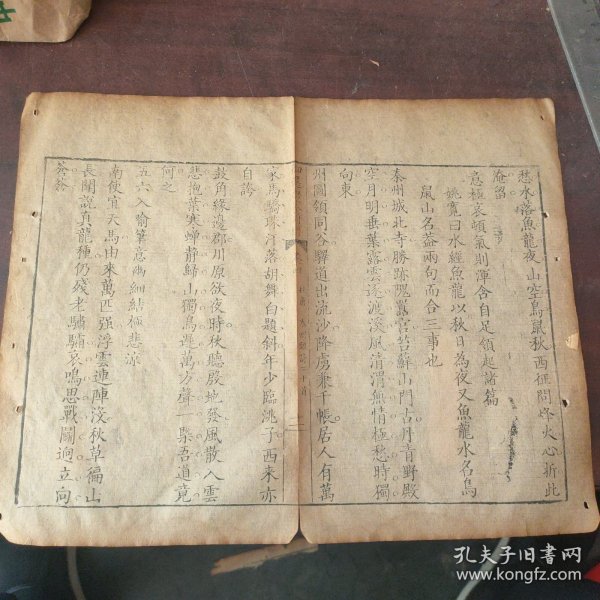 愁水落魚龍夜山空鳥鼠秋西征問烽火心折此
淹留
意極哀頓氣則渾含自足領起諸篇
姚寬曰水經魚龍以秋日為夜又魚龍水名鳥
鼠山名葢兩句而合三事也
秦州城北寺勝跡隗囂宮苔蘚山門古丹青野殿
空月明垂葉露雲逐渡溪風清渭無情極愁時獨
向東
州圖領同谷驛道出流沙降虜兼千帳居人有萬
家馬驕珠汗落胡舞白題斜年少臨洮子西來亦
自誇
鼓角緣邊郡川原欲夜時秋聽殷地發風散入雲
悲抱葉寒蟬靜歸山獨鳥遲萬方聲一槩吾道竟
何之
五六入喻筆意幽細結極悲涼
南使宜天馬由來萬匹强浮雲連陣沒秋草徧山
長聞說真龍種仍殘老驌驦哀鳴思戰鬭迥立向
蒼蒼
孔夫子旧書网
www.kongfz.com